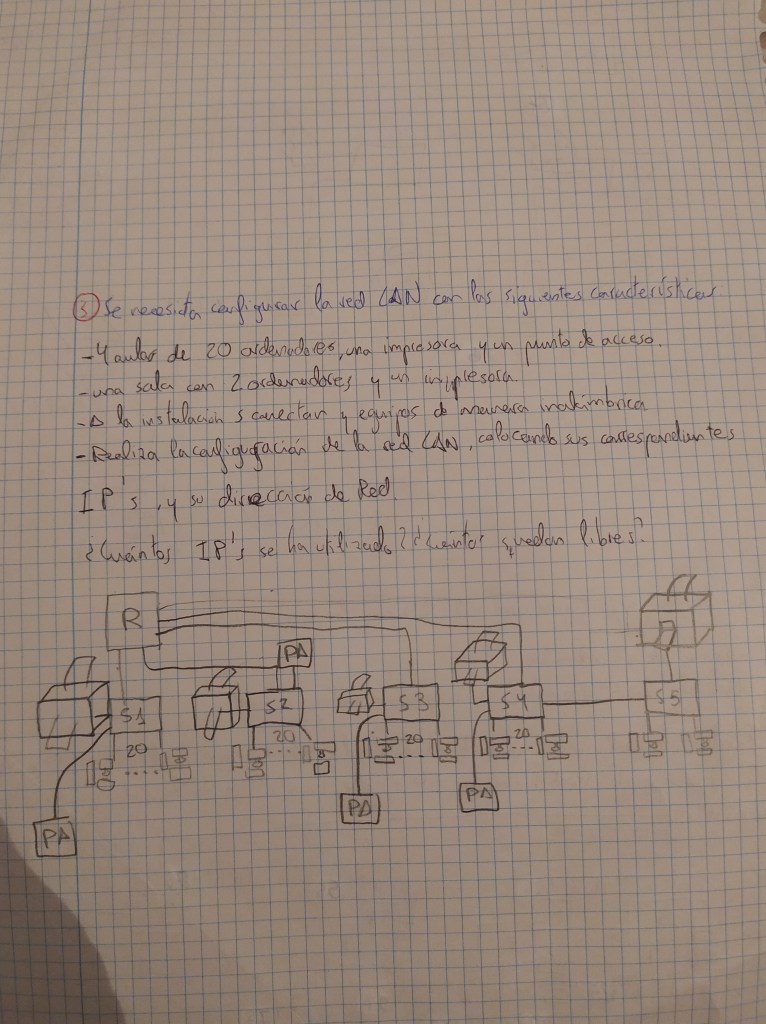 ③ Se necesita configurar la red LAN con las siguientes características
- 4 aulas de 20 ordenadores, una impresora y un punto de acceso.
- una sala con 2 ordenadores y un impresora.
- A la instalación s conectan y equipos de manera inalámbrica
- Realiza la configuración de la red LAN, colocando sus correspondientes
IP's, y su dirección de Red.
¿Cuántos IP's se ha utilizado? ¿Cuántos quedan libres?
R
PA
S1 S2 S3 S4 S5
20 20 20 20
PA PA PA